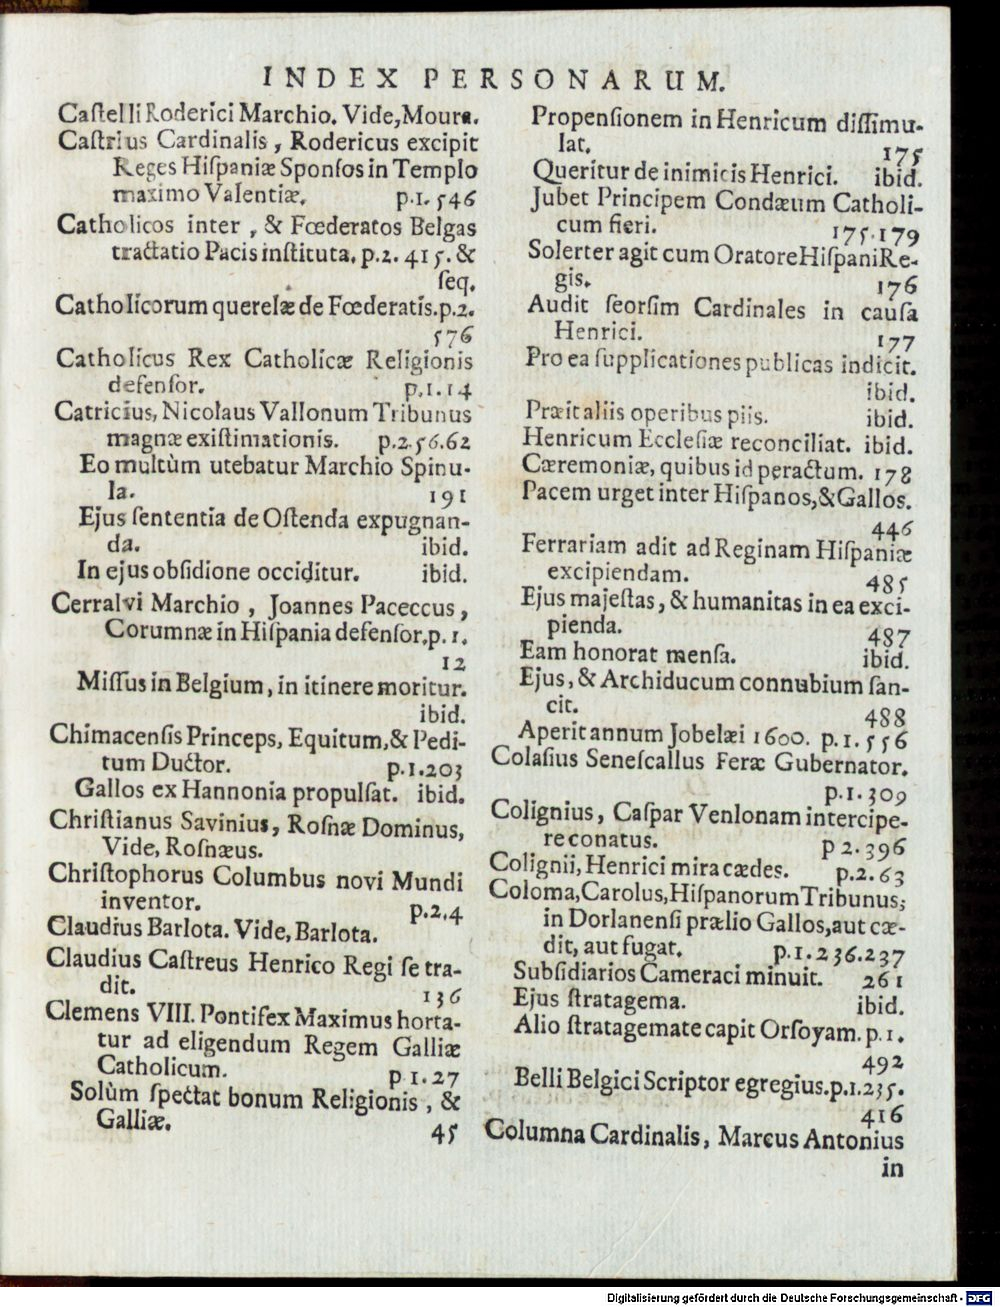 INDEX PERSONARUM.
Caſtelli Roderici Marchio. Vide, Moura.
Caſtrius Cardinalis, Rodericus excipit
Reges Hiſpaniæ Sponſos in Templo
maximo Valentiæ. p.1. 546
Catholicos inter, & Fœderatos Belgas
tractatio Pacis inſtituta. p.2. 415. &
ſeq.
Catholicorum querelæ de Fœderatis. p.2.
576
Catholicus Rex Catholicæ Religionis
defenſor. p.1.14
Catricius, Nicolaus Vallonum Tribunus
magnæ exiſtimationis. p.2.56.62
Eo multùm utebatur Marchio Spinu-
la. 191
Ejus ſententia de Oſtenda expugnan-
da. ibid.
In ejus obſidione occiditur. ibid.
Cerralvi Marchio, Joannes Paceccus,
Corumnæ in Hiſpania defenſor. p. 1.
12
Miſſus in Belgium, in itinere moritur.
ibid.
Chimacenſis Princeps, Equitum, & Pedi-
tum Ductor. p.1.203
Gallos ex Hannonia propulſat. ibid.
Chriſtianus Savinius, Roſnæ Dominus,
Vide, Roſnæus.
Chriſtophorus Columbus novi Mundi
inventor. p.2.4
Claudius Barlota. Vide, Barlota.
Claudius Caſtreus Henrico Regi ſe tra-
dit. 136
Clemens VIII. Pontifex Maximus horta-
tur ad eligendum Regem Galliæ
Catholicum. p 1.27
Solùm ſpectat bonum Religionis, &
Galliæ. 45
Propenſionem in Henricum diſſimu-
lat. 175
Queritur de inimicis Henrici. ibid.
Jubet Principem Condæum Catholi-
cum fieri. 175.179
Solerter agit cum Oratore Hiſpani Re-
gis. 176
Audit ſeorſim Cardinales in cauſa
Henrici. 177
Pro ea ſupplicationes publicas indicit.
ibid.
Præit aliis operibus piis. ibid.
Henricum Eccleſiæ reconciliat. ibid.
Cæremoniæ, quibus id peractum. 178
Pacem urget inter Hiſpanos, & Gallos.
446
Ferrariam adit ad Reginam Hiſpaniæ
excipiendam. 485
Ejus majeſtas, & humanitas in ea exci-
pienda. 487
Eam honorat menſa. ibid.
Ejus, & Archiducum connubium ſan-
cit. 488
Aperit annum Jobelæi 1600. p.1.556
Colaſius Seneſcallus Feræ Gubernator.
p.1.309
Colignius, Caſpar Venlonam intercipe-
re conatus. p 2.396
Colignii, Henrici mira cædes. p.2.63
Coloma, Carolus, Hiſpanorum Tribunus,
in Dorlanenſi prælio Gallos, aut cæ-
dit, aut fugat. p.1.236.237
Subſidiarios Cameraci minuit. 261
Ejus ſtratagema. ibid.
Alio ſtratagemate capit Orſoyam. p.1.
492
Belli Belgici Scriptor egregius. p.1.235.
416
Columna Cardinalis, Marcus Antonius
in
Digitalisierung gefördert durch die Deutsche Forschungsgemeinschaft - DFG